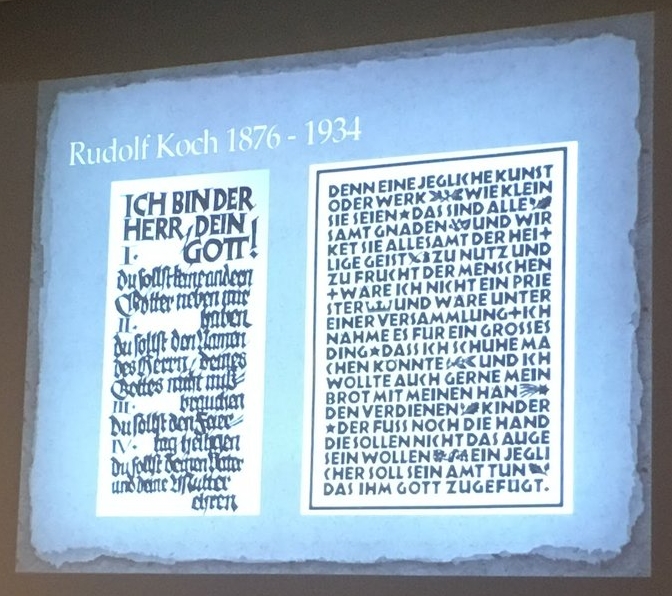 Rudolf Koch 1876 - 1934
ICH BIN DER
HERR, DEIN
I. GOTT!
du sollst keine andern
Götter neben mir
II. haben
Du sollst den Namen
des Herrn, deines
Gottes nicht miß-
III. brauchen
Du sollst den Feier-
IV. tag heiligen
Du sollst deinen Vater
und deine Mutter
ehren
DENN EINE JEGLICHE KUNST
ODER WERK WIE KLEIN
SIE SEIEN★DAS SIND ALLE
SAMT GNADEN UND WIR
KET SIE ALLESAMT DER HEI+
LIGE GEIST ZU NUTZ UND
ZU FRUCHT DER MENSCHEN
+WARE ICH NICHT EIN PRIE
STER UND WARE UNTER
EINER VERSAMMLUNG+ICH
NAHME ES FUR EIN GROSSES
DING★DASS ICH SCHUHE MA
CHEN KÖNNTE UND ICH
WOLLTE AUCH GERNE MEIN
BROT MIT MEINEN HAN
DEN VERDIENEN! KINDER
★DER FUSS NOCH DIE HAND
DIE SOLLEN NICHT DAS AUGE
SEIN WOLLEN EIN JEGLI
CHER SOLL SEIN AMT TUN
DAS IHM GOTT ZUGEFUGT.